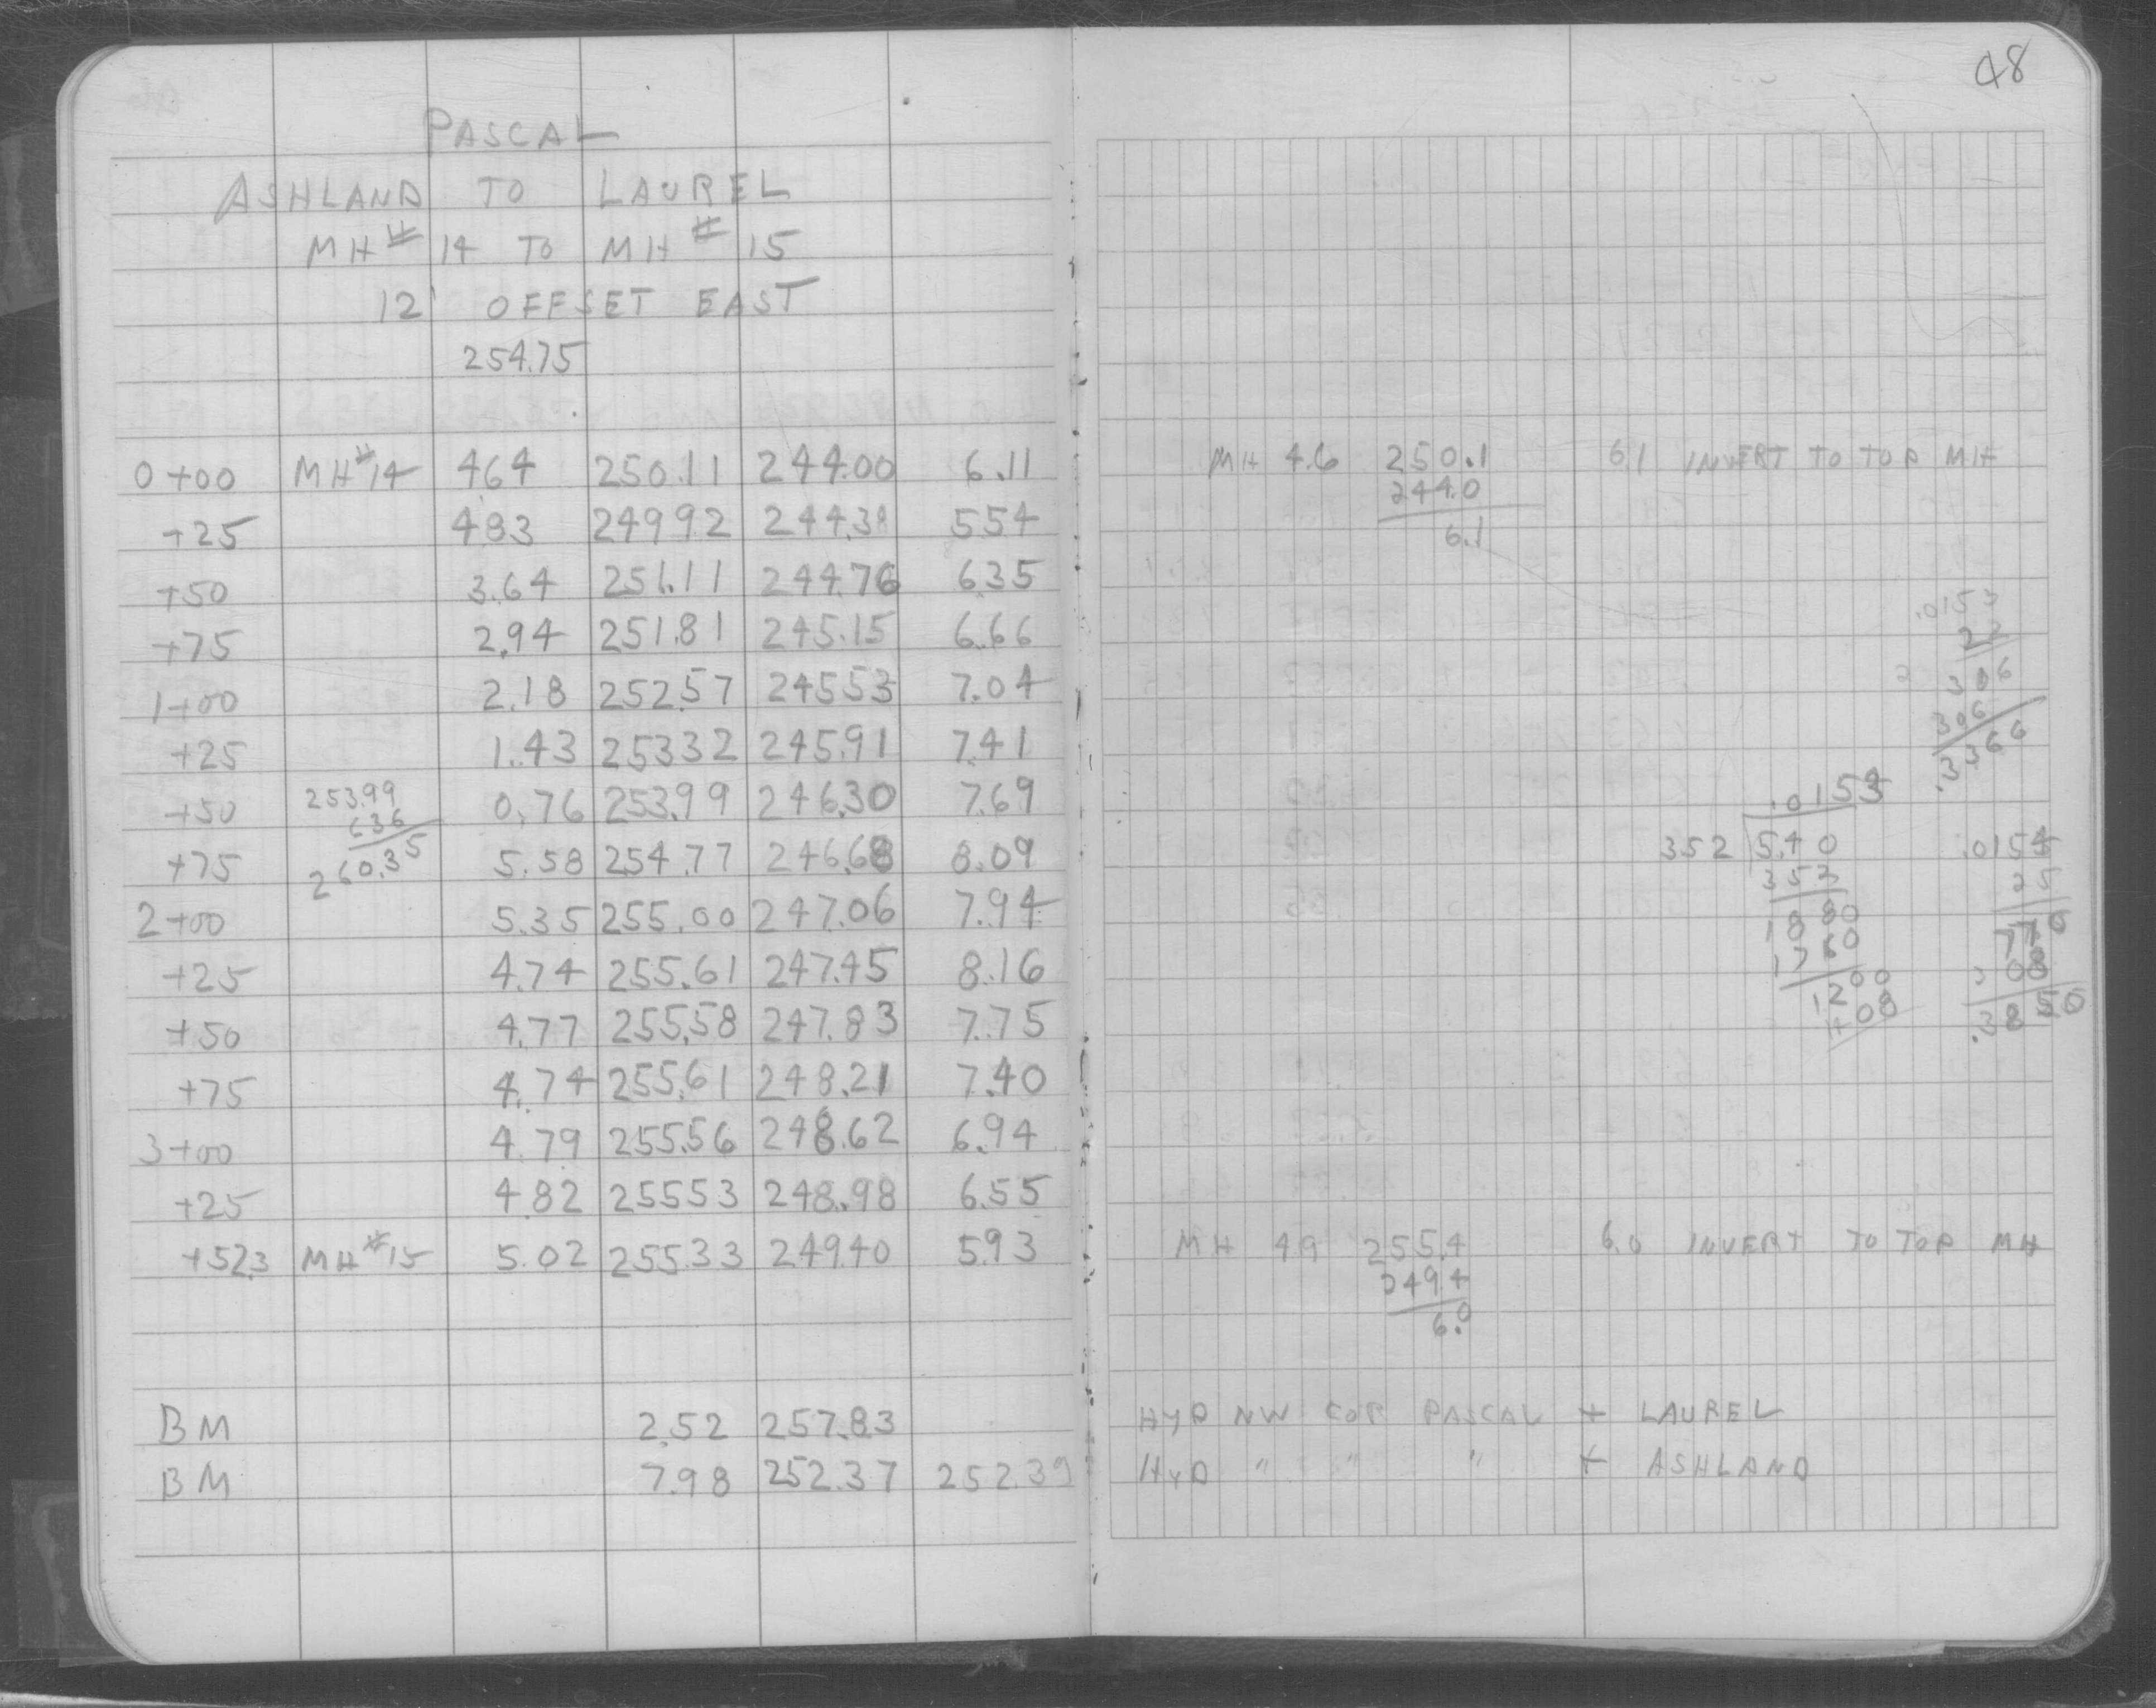 48
PASCAL
ASHLAND TO LAUREL
MH # 14 TO MH # 15
12' OFFSET EAST
254.75
0+00 MH#14 4.64 250.11 244.00 6.11
+25 4.83 249.92 244.38 5.54
+50 3.64 251.11 244.76 6.35
+75 2.94 251.81 245.15 6.66
1+00 2.18 252.57 245.53 7.04
+25 1.43 253.32 245.91 7.41
+50 253.99 0.76 253.99 246.30 7.69
6.36
+75 260.35 5.58 254.77 246.68 8.09
2+00 5.35 255.00 247.06 7.94
+25 4.74 255.61 247.45 8.16
+50 4.77 255.58 247.83 7.75
+75 4.74 255.61 248.21 7.40
3+00 4.79 255.56 248.62 6.94
+25 4.82 255.53 248.98 6.55
+52.3 MH#15 5.02 255.33 249.40 5.93
BM 2.52 257.83
BM 7.98 252.37 252.39
MH 4.6 250.1 6.1 INVERT TO TOP MH
244.0
6.1
.0153
22
306
306
.3366
.0153
352 5.40
352
1880
1760
1200
.0154
25
770
308
.3850
MH 4.9 255.4 6.0 INVERT TO TOP MH
249.4
6.0
HYD NW COR PASCAL + LAUREL
HYD " " " + ASHLAND